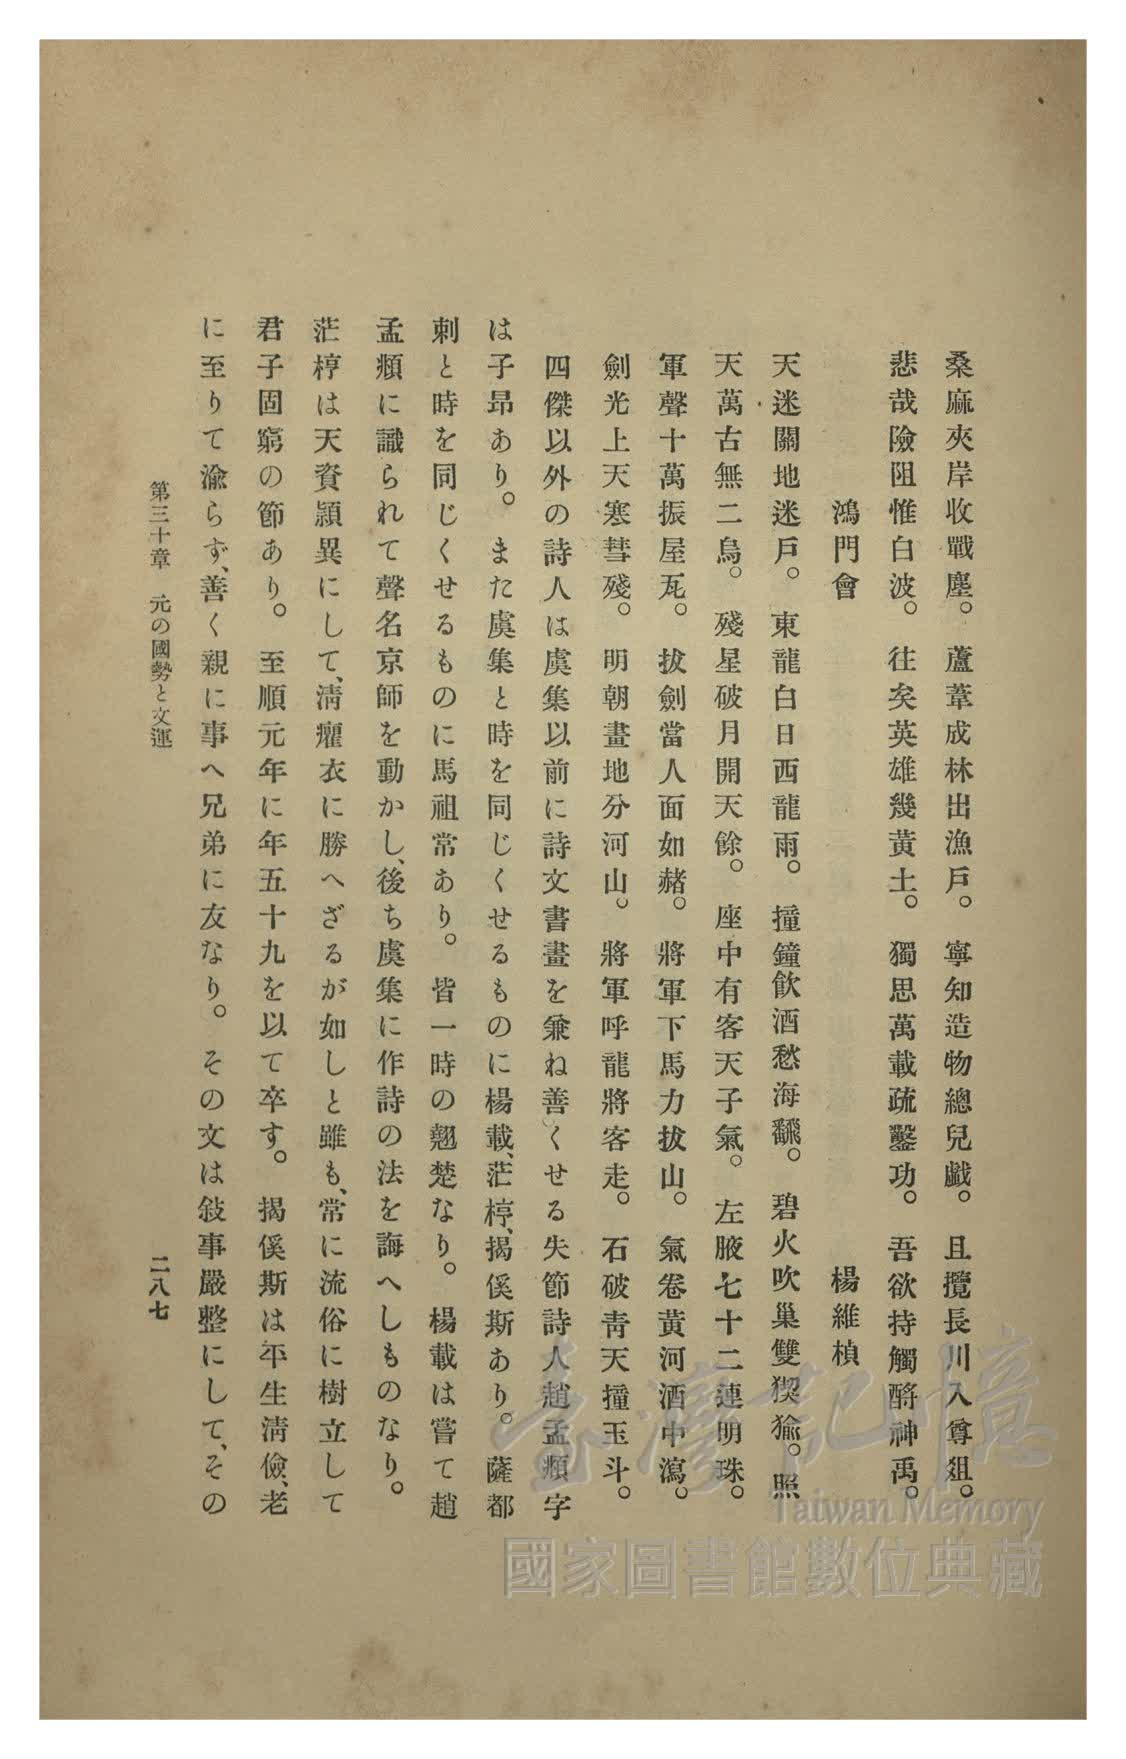 桑麻夾岸收戰塵。蘆葦成林出漁戶。寧知造物總兒戲。且攬長川入尊爼。
悲哉險阻惟白波。往矣英雄幾黃土。獨思萬載疏鑿功。吾欲持觴酹神禹。
鴻門會　楊維楨
天迷關地迷戶。東龍白日西龍雨。撞鐘飮酒愁海飜。碧火吹巢雙猰㺄。照
天萬古無二烏。殘星破月開天餘。座中有客天子氣。左腋七十二連明珠。
軍聲十萬振屋瓦。拔劍當人面如赭。將軍下馬力拔山。氣卷黃河酒中瀉。
劍光上天寒彗殘。明朝畫地分河山。將軍呼龍將客走。石破靑天撞玉斗。
四傑以外の詩人は虞集以前に詩文書畫を兼ね善くせる失節詩人趙孟頫字
は子昂あり。また虞集と時を同じくせるものに楊載、茫椁、揭傒斯あり。薩都
剌と時を同じくせるものに馬祖常あり。皆一時の翹楚なり。楊載は嘗て趙
孟頫に識られて聲名京師を動かし、後ち虞集に作詩の法を誨へしものなり。
茫椁は天資頴異にして、淸癯衣に勝へざるが如しと雖も、常に流俗に樹立して
君子固窮の節あり。至順元年に年五十九を以て卒す。揭傒斯は平生淸儉、老
に至りて渝らず、善く親に事へ兄弟に友なり。その文は敍事嚴整にして、その
第三十章　元の國勢と文運　二八七
臺灣記憶
Taiwan Memory
國家圖書館數位典藏